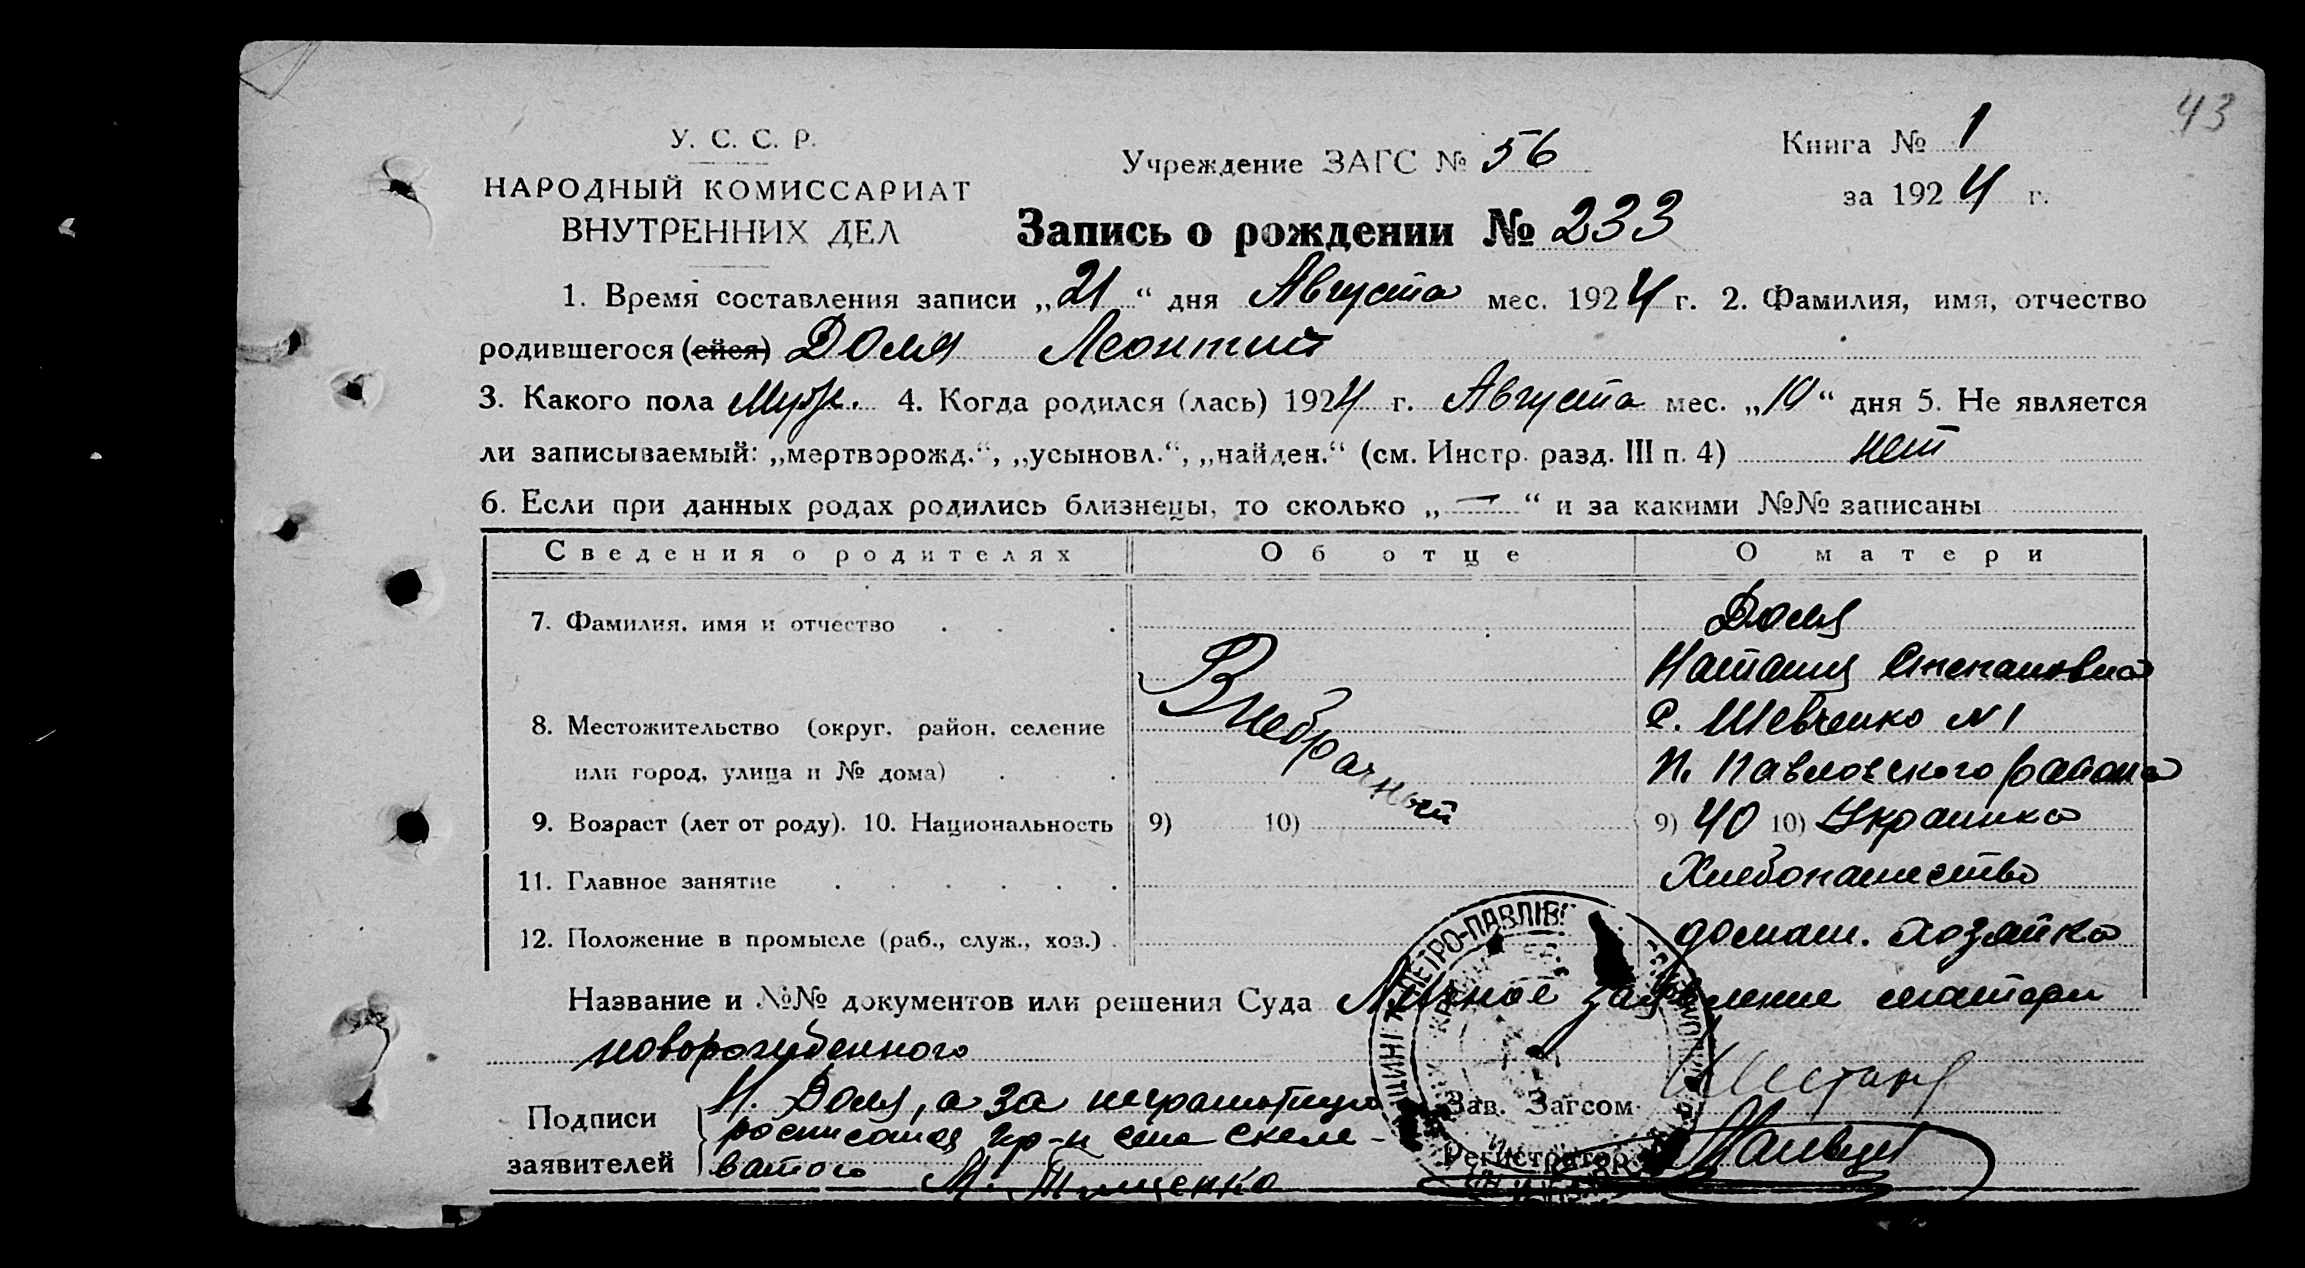 43
У. С. С. Р.
НАРОДНЫЙ КОМИССАРИАТ
ВНУТРЕННИХ ДЕЛ
Учреждение ЗАГС № 56
Книга № 1
за 1924 г.
Запись о рождении № 233
1. Время составления записи „21“ дня Августа мес. 1924 г. 2. Фамилия, имя, отчество
родившегося (ейся) Доля Леонтий
3. Какого пола Муж. 4. Когда родился (лась) 1924 г. Августа мес. „10“ дня 5. Не является
ли записываемый: „мертворожд.“, „усыновл.“, „найден.“ (см. Инстр. разд. III п. 4) нет
6. Если при данных родах родились близнецы, то сколько „—“ и за какими №№ записаны
Сведения о родителях Об отце О матери
7. Фамилия, имя и отчество Доля
Наталия Степановна
Внебрачный
8. Местожительство (округ, район, селение Р. Шевченко N 1
или город, улица и № дома) П. Павловского района
9. Возраст (лет от роду). 10. Национальность 9) 10) 9) 40 10) Украинка
11. Главное занятие Хлебопашество
12. Положение в промысле (раб., служ., хоз.) домаш. хозяйка
Название и №№ документов или решения Суда Личное заявление матери
новорожденного
Подписи заявителей Н. Доля, а за неграмотную
росписался гр-н села Скеле-
ватого М. Тищенко
Зав. Загсом
Регистратор
ПЕТРО-ПАВЛІВ